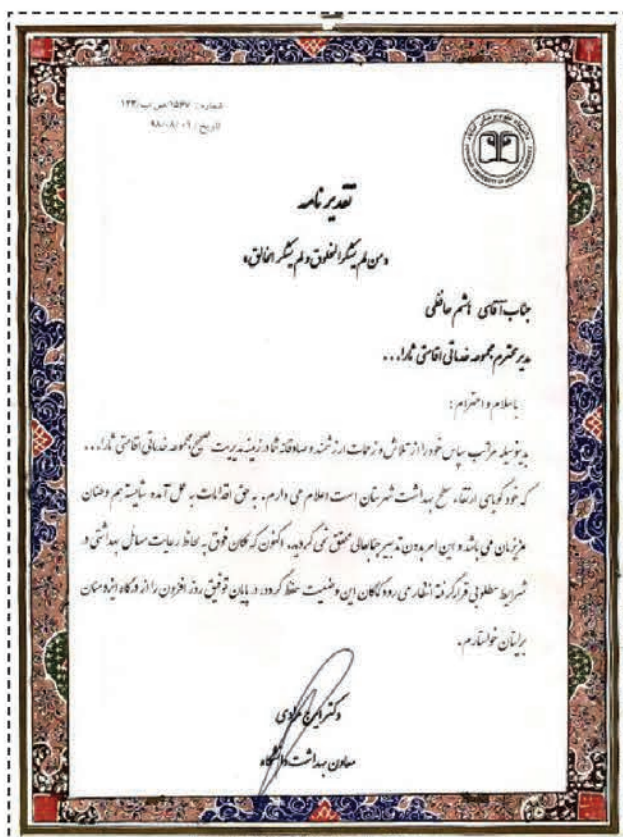 شماره: ۱۵۶۷/ص ب/۱۳۳
تاریخ: ۹۸/۰۸/۰۹
تقدیر نامه
«من لم یشکر المخلوق و لم یشکر الخالق»
جناب آقای هاشم حافظی
مدیر محترم مجموعه خدماتی اقامتی ثارا...
باسلام و احترام:
بدینوسیله مراتب سپاس خود را از تلاش و زحمات ارزشمند و صادقانه شما در زمینه مدیریت صحیح مجموعه خدماتی اقامتی ثارا...
که خود گویای ارتقاء سطح بهداشت شهرستان است اعلام می دارم. به حق اقدامات به عمل آمده شایسته هم وطنان
عزیزمان می باشد و این امر بدون تدبیر جنابعالی محقق نمی گردید. اکنون که مکان فوق به لحاظ رعایت مسائل بهداشتی در
شرایط مطلوبی قرار گرفته انتظار می رود کماکان این وضعیت حفظ گردد. در پایان توفیق روز افزون را از درگاه ایزد منان
برایتان خواستارم.
دکتر ایرج مرادی
معاون بهداشت دانشگاه